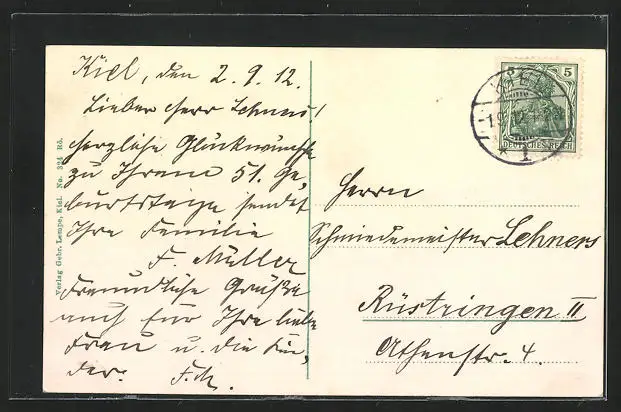 Kiel, den 2.9.12.
Lieber Herr Lehners!
herzliche Glückwünsche
zu Ihrem 51. Ge-
burtstage sendet
Ihre Familie
F. Müller
Freundliche Grüße
auch für Ihre liebe
Frau u. die Kin,
der. F.M.
Verlag Gebr. Lempe, Kiel. No. 324 Rö.
5
DEUTSCHES REICH
KIEL
1
Herrn
Schmiedemeister Lehners
Rüstringen II
Athenstr. 4.